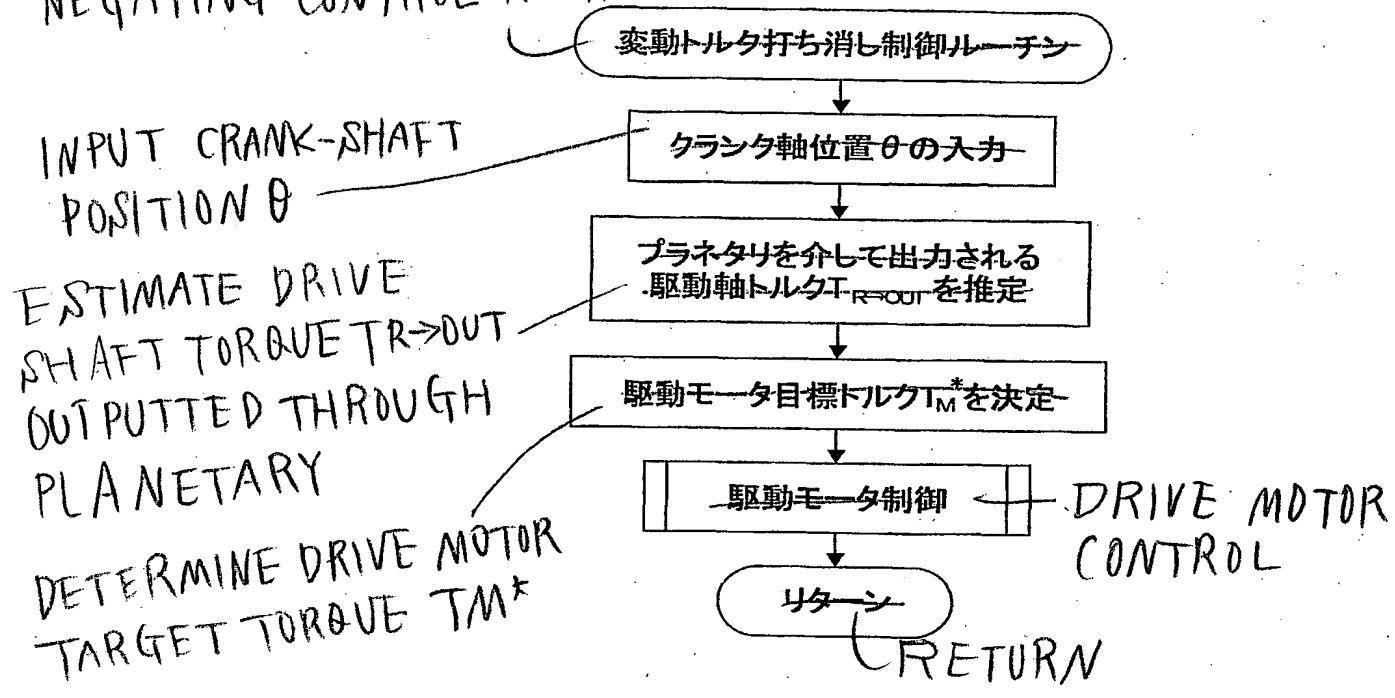 NEGATING CONTROL
変動トルク打ち消し制御ルーチン
INPUT CRANK-SHAFT
POSITION θ
クランク軸位置θの入力
ESTIMATE DRIVE
SHAFT TORQUE TR→OUT
OUTPUTTED THROUGH
PLANETARY
プラネタリを介して出力される
駆動軸トルクTR→OUTを推定
DETERMINE DRIVE MOTOR
TARGET TORQUE TM*
駆動モータ目標トルクTM*を決定
駆動モータ制御
DRIVE MOTOR
CONTROL
リターン
RETURN